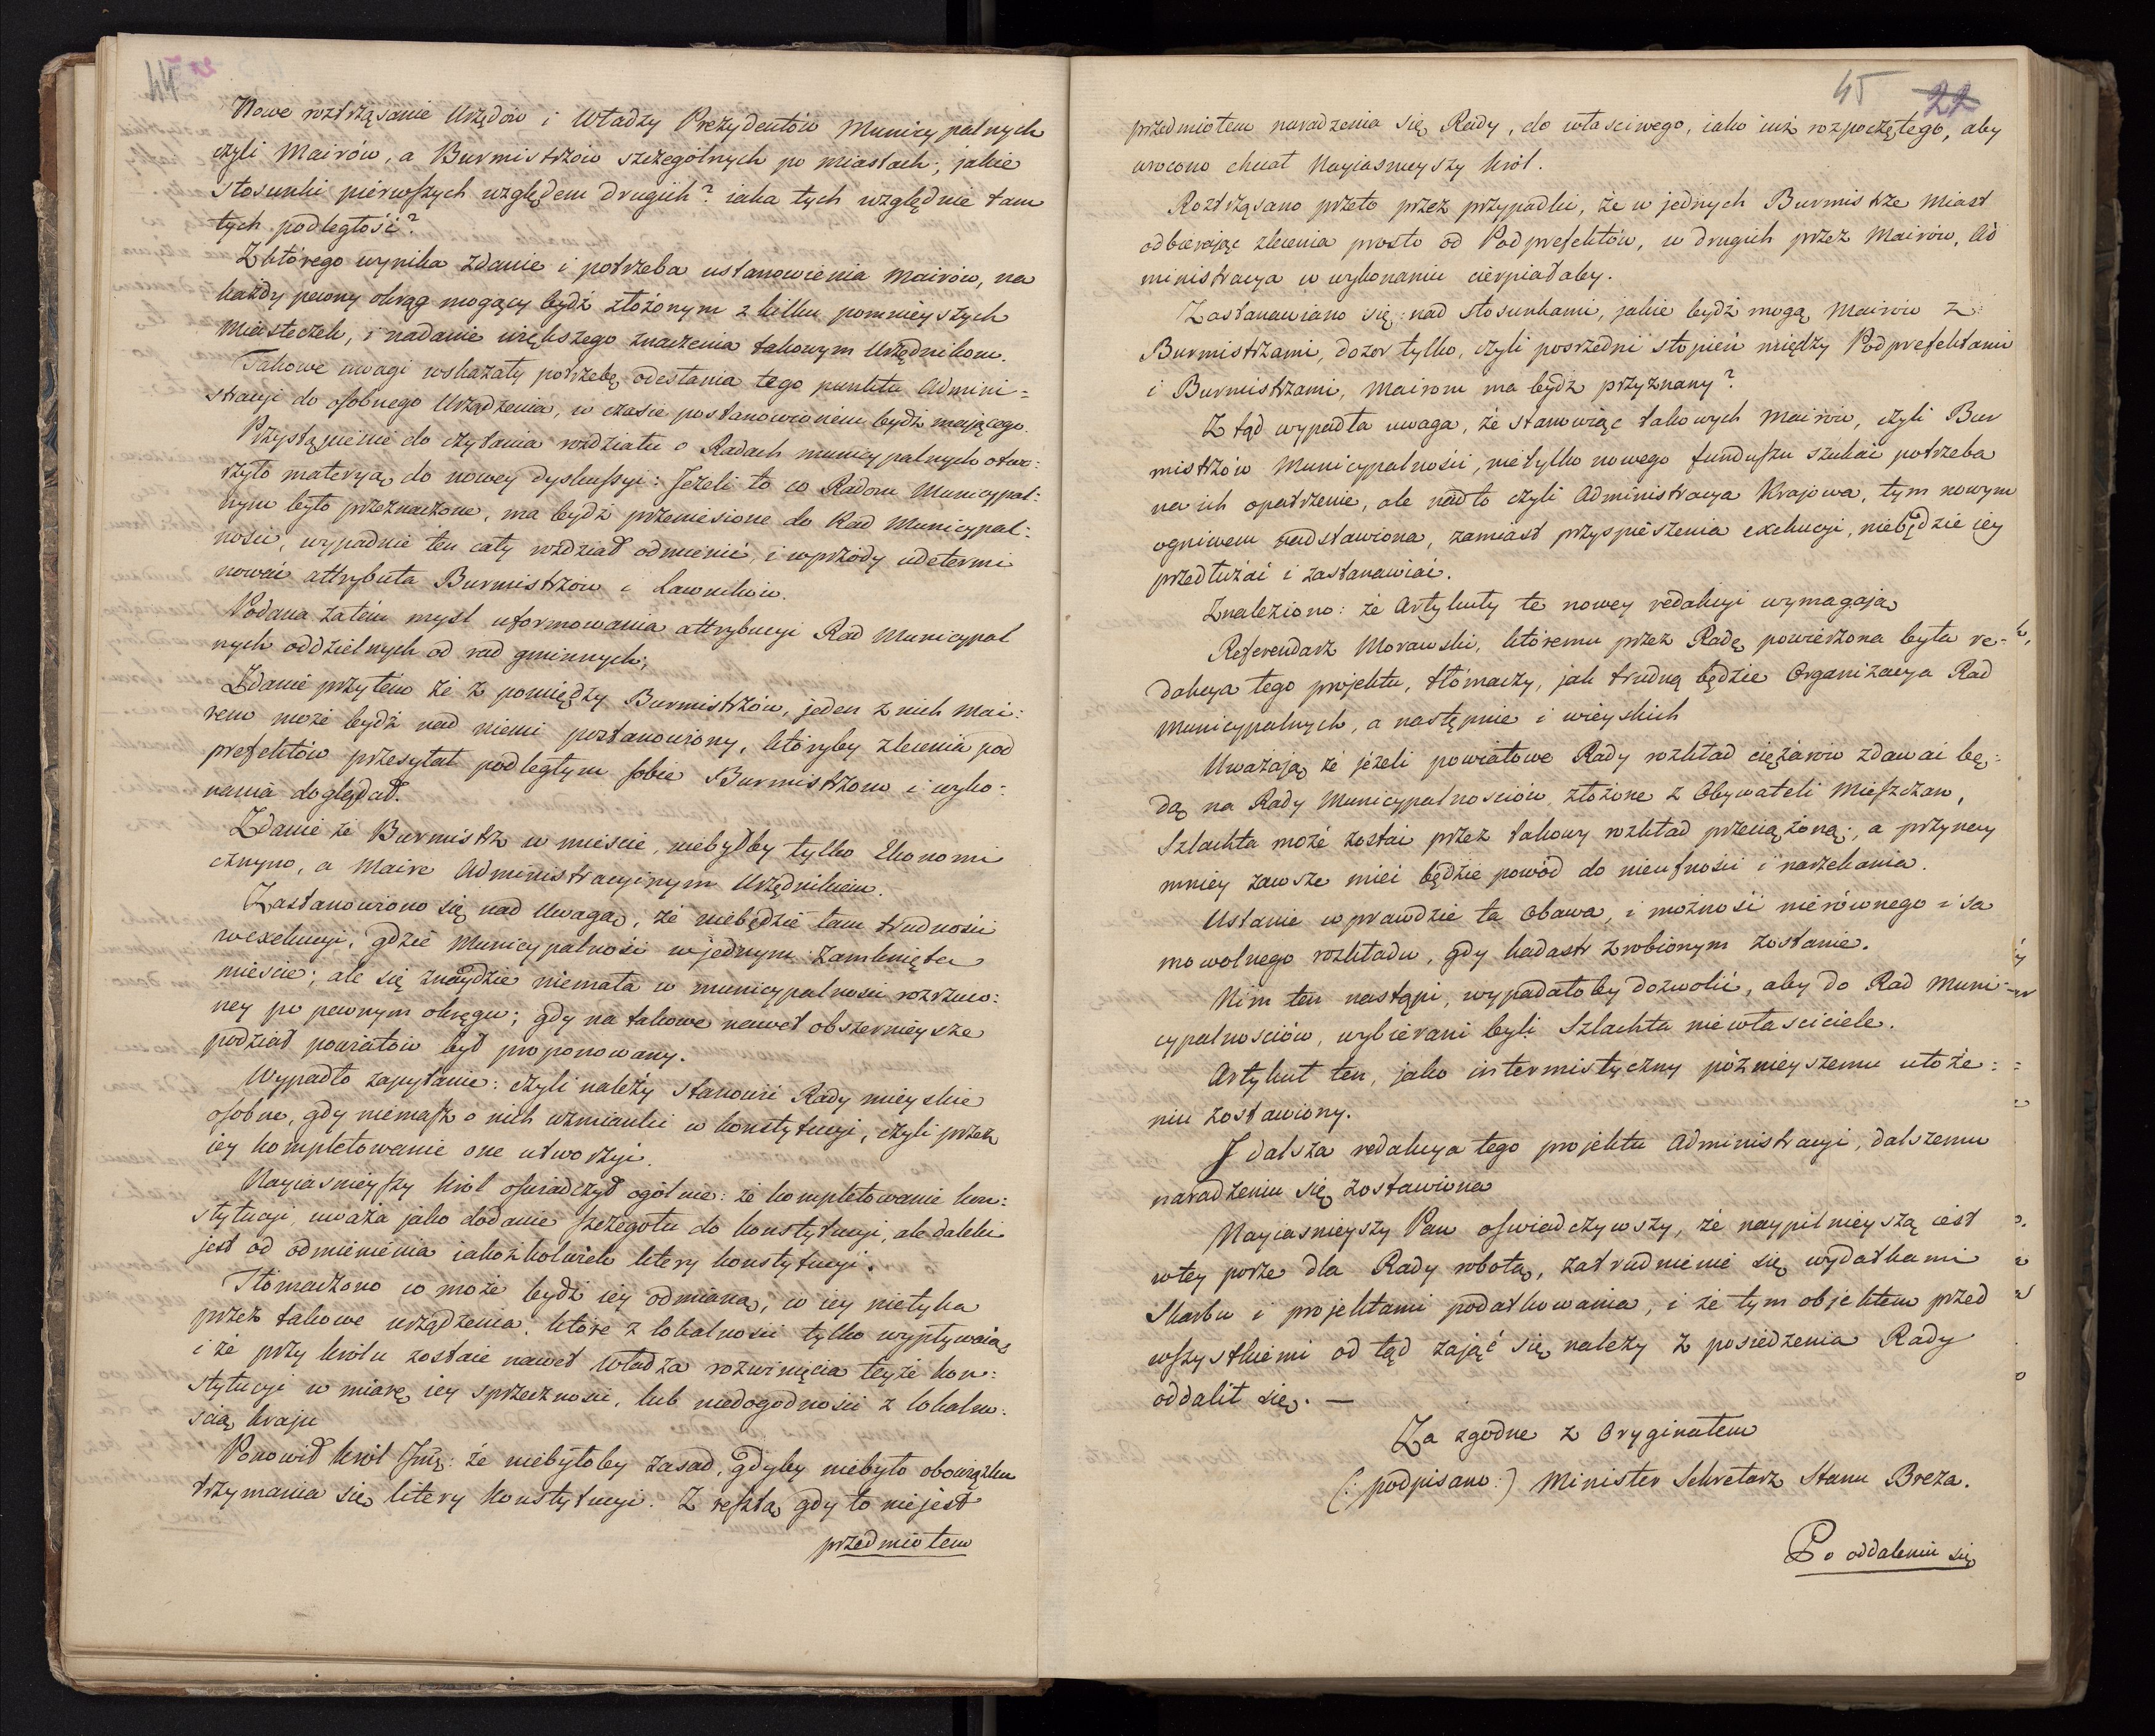 44
Nowe roztrząsanie Urzędów i Władzy Prezydentów Municypalnych
czyli Mairów, a Burmistrzów szczególnych po miastach; jakie
stosunki pierwszych względem drugich? iaka tych względnie tam
tych podległość?
Z którego wynika zdanie i potrzeba ustanowienia Mairów, na
każdy pewny okrąg mogący bydź złożonym z kilku pomnieyszych
Miasteczek, i nadanie większego znaczenia takowym Urzędnikom.
Takowe uwagi wskazały potrzebę odesłania tego punktu Admini=
stracyi do osobnego Urządzenia, w czasie postanowieniem bydź mającego.
Przystąpienie do czytania rozdziału o Radach municypalnych otwo:
rzyło materyą do nowey dyskussyi: Jeżeli to co Radom Municypal:
nym było przeznaczone, ma bydź przeniesione do Rad Municypal:
ności, wypadnie ten cały rozdział odmienić, i wprzódy udetermi
nować attrybuta Burmistrzów i Ławników.
Podana zatém myśl uformowania attrybucyi Rad Municypal
nych oddzielnych od rad gminnych;
Zdanie przytém że z pomiędzy Burmistrzów, jeden z nich Mai:
rem może bydź nad niemi postanowiony, któryby zlecenia pod
prefektów przesyłał podległym sobie Burmistrzom i wyko:
nania doglądał.
Zdanie że Burmistrz w mieście, niebyłby tylko Ekonomi
cznym, a Maire Administracyinym Urzędnikiem.
Zastanowiono się nad Uwagą, że niebędzie tam trudności
w exekucyi, gdzie Municypalność w jednym zamknięta
mieście; ale się znaydzie niemała w municypalności rozrzuco:
ney po pewnym okręgu; gdy na takowe nawet obszernieysze
podział powiatów był proponowany.
Wypadło zapytanie: czyli należy stanowić Rady mieyskie
osobne, gdy niemasz o nich wzmianki w konstytucyi, czyli przez
iey kompletowanie one utworzyć.
Nayiaśnieyszy Król oświadczył ogólnie: że kompletowanie kon:
stytucyi, uważa jako dodanie szczegółu do konstytucyi, ale daleki
jest od odmienienia iakożkolwiek litery konstytucyi.
Tłomaczono co może bydź iey odmianą, co iey nietyka
przez takowe urządzenia, które z lokalności tylko wypływaią
i że przy Królu zostaie nawet Władza rozwinięcia teyże kon:
stytucyi w miarę iey sprzeczności, lub niedogodności z lokalno:
ścią kraju
Ponowił Król Jmć: że niebyłoby zasad, gdyby niebyło obowiązku
trzymania się litery Konstytucyi. Z resztą gdy to niejest
przedmiotem
45 22
przedmiotem naradzenia się Rady, do właściwego, iako iuż rozpoczętego, aby
wrócono chciał Nayiaśnieyszy Król.
Roztrząsano przeto przez przypadki, że w jednych Burmistrze Miast
odbierając zlecenia prosto od Podprefektów, w drugich przez Mairów, Ad
ministracya w wykonaniu cierpiałaby.
Zastanawiano się: nad stosunkami, jakie bydź mogą Mairów z
Burmistrzami, dozór tylko, czyli pośredni stopień między Podprefektami
i Burmistrzami, Mairom ma bydź przyznany?
Z tąd wypadła uwaga, że stanowiąc takowych Mairów, czyli Bur
mistrzów Municypalności, nietylko nowego funduszu szukać potrzeba
na ich opatrzenie, ale nadto czyli Administracya Krajowa, tym nowym
ogniwem nadstawiona, zamiast przyspieszenia exekucyi, niebędzie iey
przedłużać i zastanawiać.
Znaleziono: że Artykuły te nowey redakcyi wymagają
Referendarz Morawski, któremu przez Radę powierzona była re=
dakcya tego projektu, tłómaczy, jak trudną będzie Organizacya Rad
Municypalnych, a następnie i wieyskich
Uważają że jeżeli powiatowe Rady rozkład ciężarów zdawać bę:
dą na Rady Municypalnościów, złożone z Obywateli Mieszczan,
Szlachta może zostać przez takowy rozkład przeciążoną; a przynay
mniey zawsze mieć będzie powód do nieufności i narzekania.
Ustanie wprawdzie ta Obawa, i możność nierównego i sa
mowolnego rozkładu, gdy kadastr zrobionym zostanie.
Nim ten nastąpi, wypadałoby dozwolić, aby do Rad Muni
cypalnościów, wybierani byli Szlachta niewłaściciele.
Artykuł ten, jako intermistyczny późnieyszemu ułoże:
niu zostawiony.
I dalsza redakcya tego projektu Administracyi, dalszemu
naradzeniu się zostawiona
Nayiaśnieyszy Pan oświadczywszy, że naypilnieyszą iest
w tey porze dla Rady robotą, zatrudnienie się wydatkami
Skarbu i projektami podatkowania, i że tym objektem przed
wszystkiemi od tąd zająć się należy z posiedzenia Rady
oddalił się. —
Za zgodne z Oryginałem
(: podpisano :) Minister Sekretarz Stanu Breza.
Po oddaleniu się